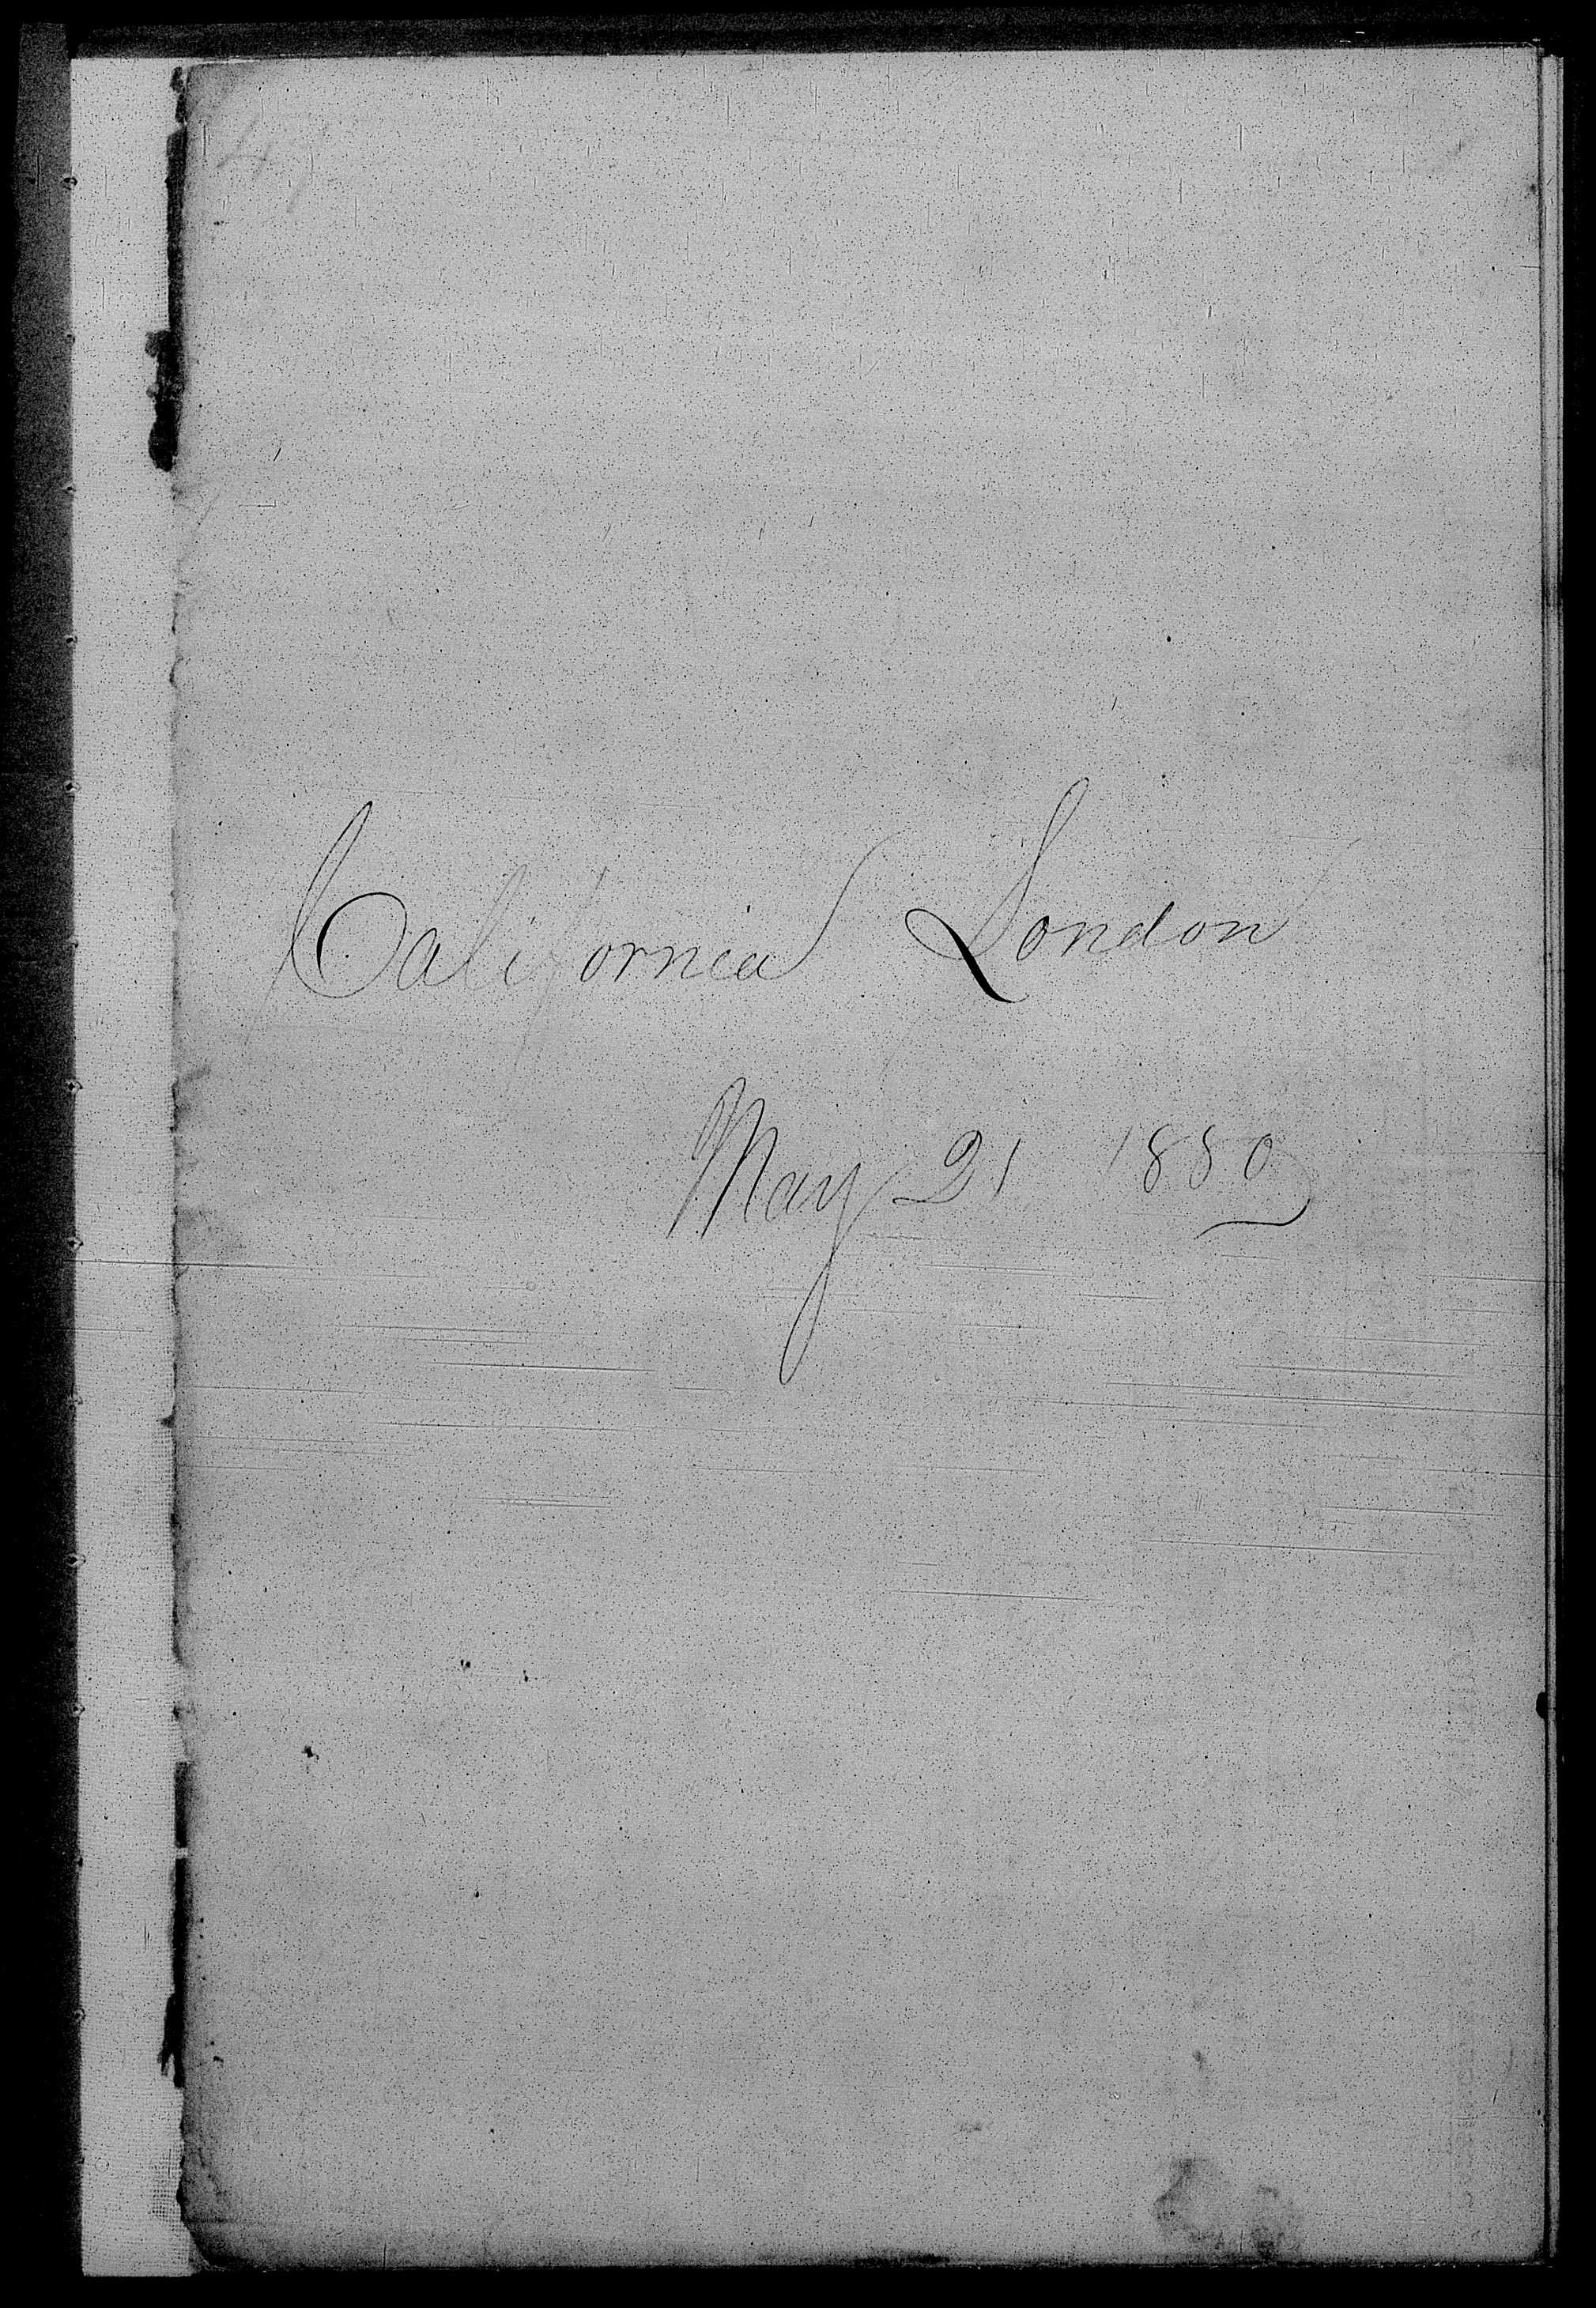 California London
May 21 1880